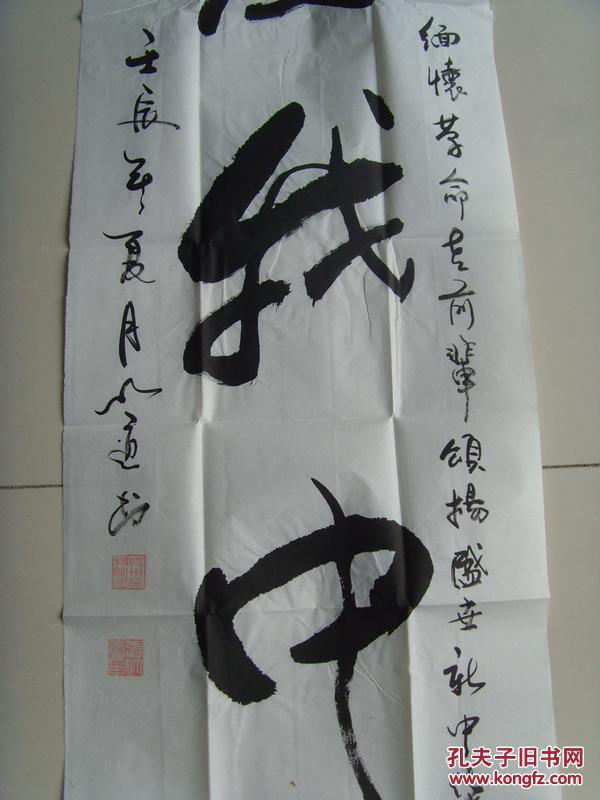 缅懷革命老前輩頌揚盛世新中
我中
壬辰年夏月
孔夫子旧书网
www.kongfz.com